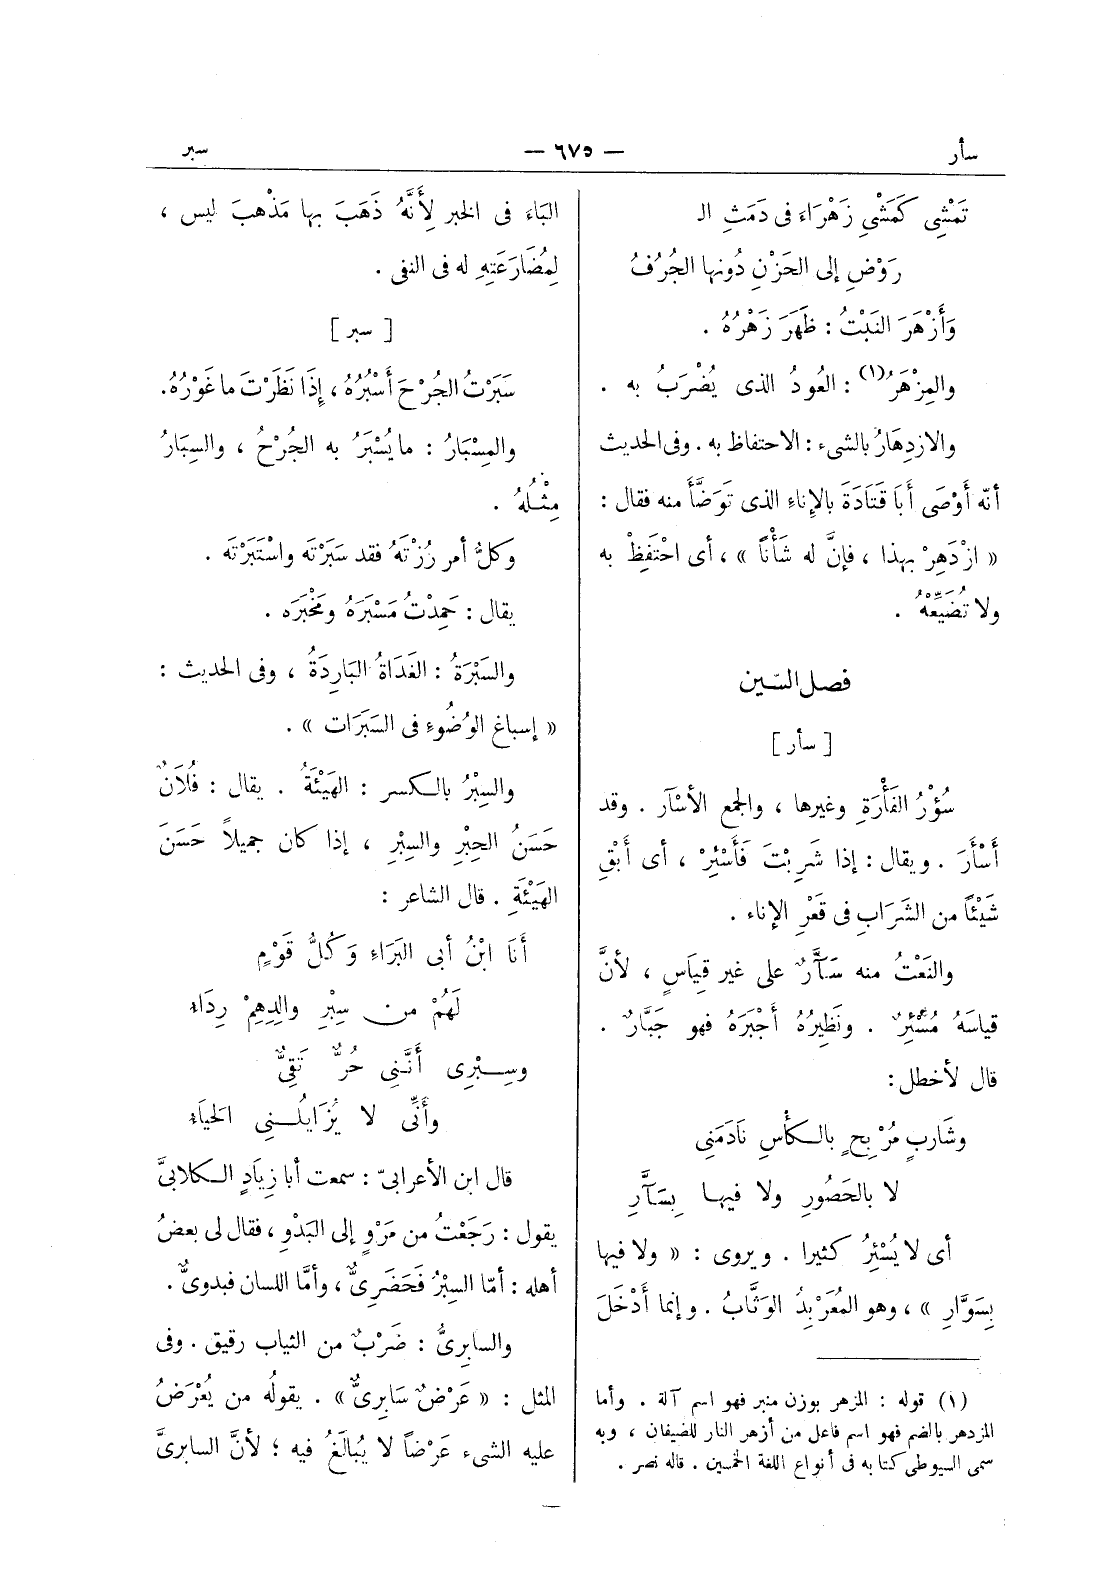 سأر
— ٦٧٥ —
سبر
تَمْشِى كَمَشْىِ زَهْرَاءَ فى دَمَثِ الـ
رَوْضِ إلى الحَزْنِ دُونها الجُرُفُ
وَأَزْهَرَ النَبْتُ : ظَهَرَ زَهْرُهُ .
والمِزْهَرُ(١) : العُودُ الذى يُضْرَبُ به .
والازدِهَارُ بالشىء : الاحتفاظ به . وفى الحديث
أنّه أَوْصَى أَبَا قَتَادَةَ بالإناءِ الذى تَوَضَّأَ منه فقال :
« ازْدَهِرْ بهذا ، فإنَّ له شَأْناً » ، أى احْتَفِظْ به
ولا تُضَيِّعْهُ .
فصل السّين
[ سأر ]
سُؤْرُ الفَأْرَةِ وغيرها ، والجمع الأسْآر . وقد
أَسْأَرَ . ويقال : إذا شَرِبْتَ فَأَسْئِرْ ، أى أَبْقِ
شَيْئاً من الشَرَابِ فى قَعْرِ الإناء .
والنَعْتُ منه سَآَّرٌ على غير قِيَاسٍ ، لأنَّ
قياسَهُ مُسْئِرٌ . ونَظِيرُهُ أَجْبَرَهُ فهو جَبَّارٌ .
قال لأخطل :
وشَارِبٍ مُرْبِحٍ بالكَأْسِ نَادَمَنِى
لا بالحَصُورِ ولا فيها بِسَآَّرِ
أى لا يُسْئِرُ كثيرا . ويروى : « ولا فيها
بِسَوَّارِ » ، وهو المُعَرْبِدُ الوَثَّابُ . وإنما أَدْخَلَ
(١) قوله : المزهر بوزن منبر فهو اسم آلة . وأما
المزدهر بالضم فهو اسم فاعل من أزهر النار للضيفان ، وبه
سمى السيوطى كتابه فى أنواع اللغة الخمسين . قاله نصر .
البَاءَ فى الخبر لِأَنَّهُ ذَهَبَ بها مَذْهبَ ليس ،
لِمُضَارَعَتِهِ له فى النفى .
[ سبر ]
سَبَرْتُ الجُرْحَ أَسْبُرُهُ ، إِذَا نَظَرْتَ ما غَوْرُهُ.
والمِسْبَارُ : ما يُسْبَرُ به الجُرْحُ ، والسِبَارُ
مِثْلُهُ .
وكلُّ أمر رُزْتَهُ فقد سَبَرْتَه واسْتَبَرْتَه .
يقال : حَمِدْتُ مَسْبَرَهُ ومَخْبَرَه .
والسَبْرَةُ : الغَدَاةُ البَارِدَةُ ، وفى الحديث :
« إسباغ الوُضُوءِ فى السَبَرَات » .
والسِبْرُ بالكسر : الهَيْئَةُ . يقال : فُلَانٌ
حَسَنُ الحِبْرِ والسِبْرِ ، إذا كان جميلاً حَسَنَ
الهَيْئَةِ . قال الشاعر :
أَنَا ابْنُ أبى البَرَاءِ وَكُلُّ قَوْمٍ
لَهُمْ من سِبْرِ والِدِهِمْ رِدَاءُ
وسِبْرِى أَنَّنِى حُرٌّ تَقِىٌّ
وأَنِّى لا يُزَايلُنِى الحَيَاءُ
قال ابن الأعرابىّ : سمعت أبا زيَادٍ الكلابىَّ
يقول : رَجَعْتُ من مَرْوٍ إلى البَدْوِ ، فقال لى بعضُ
أهله : أمّا السِبْرُ فَحَضَرِىٌّ ، وأمَّا اللسان فبدوىٌّ .
والسابِرِىُّ : ضَرْبٌ من الثياب رقيق . وفى
المثل : « عَرْضٌ سَابِرِىٌّ » . يقولُه من يُعْرَضُ
عليه الشىء عَرْضاً لا يُبَالَغُ فيه ؛ لأنَّ السابرىَّ